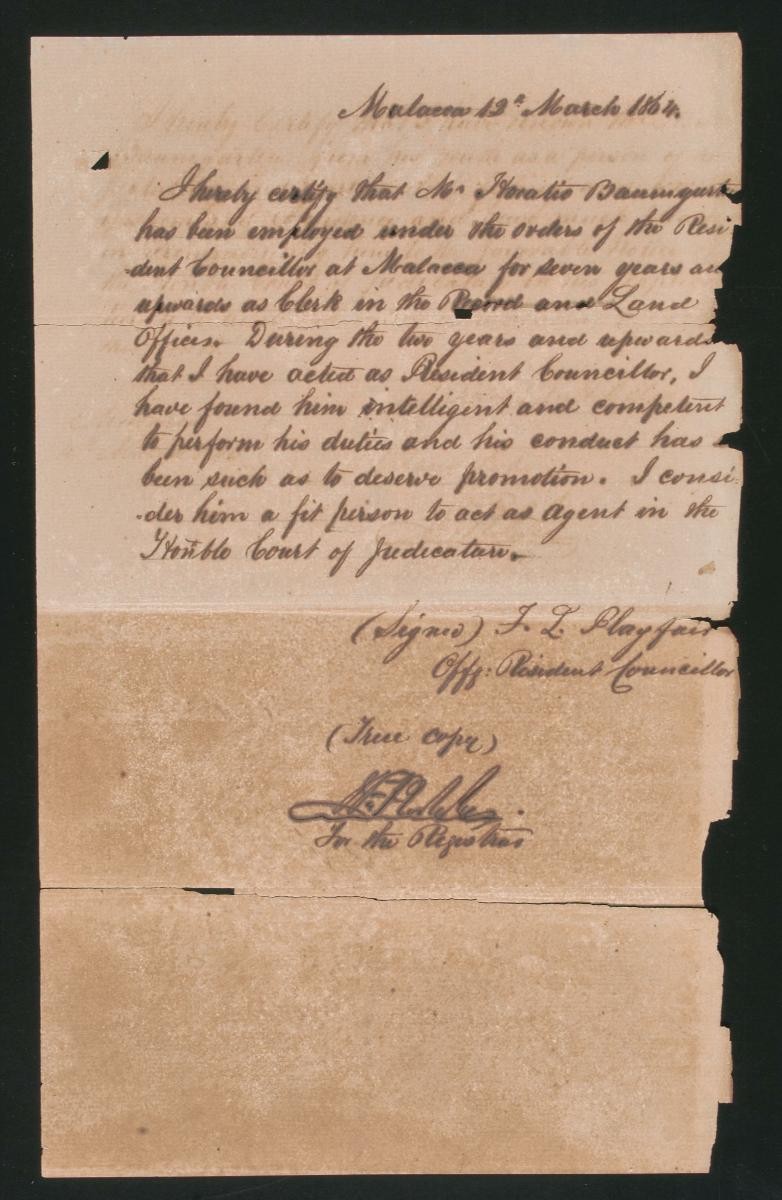 Malacca 12th March 1864.
I hereby certify that Mr Horatio Baumgart
has been employed under the orders of the Resi
dent Councillor at Malacca for seven years an
upwards as Clerk in the Record and Land
Offices. During the two years and upwards
that I have acted as Resident Councillor, I
have found him intelligent and competent
to perform his duties and his conduct has
been such as to deserve promotion. I consi
-der him a fit person to act as agent in the
Honble Court of Judicature.
(Signed) F. L. Playfair
Offg: Resident Councillor
(True copy)
For the Registrar